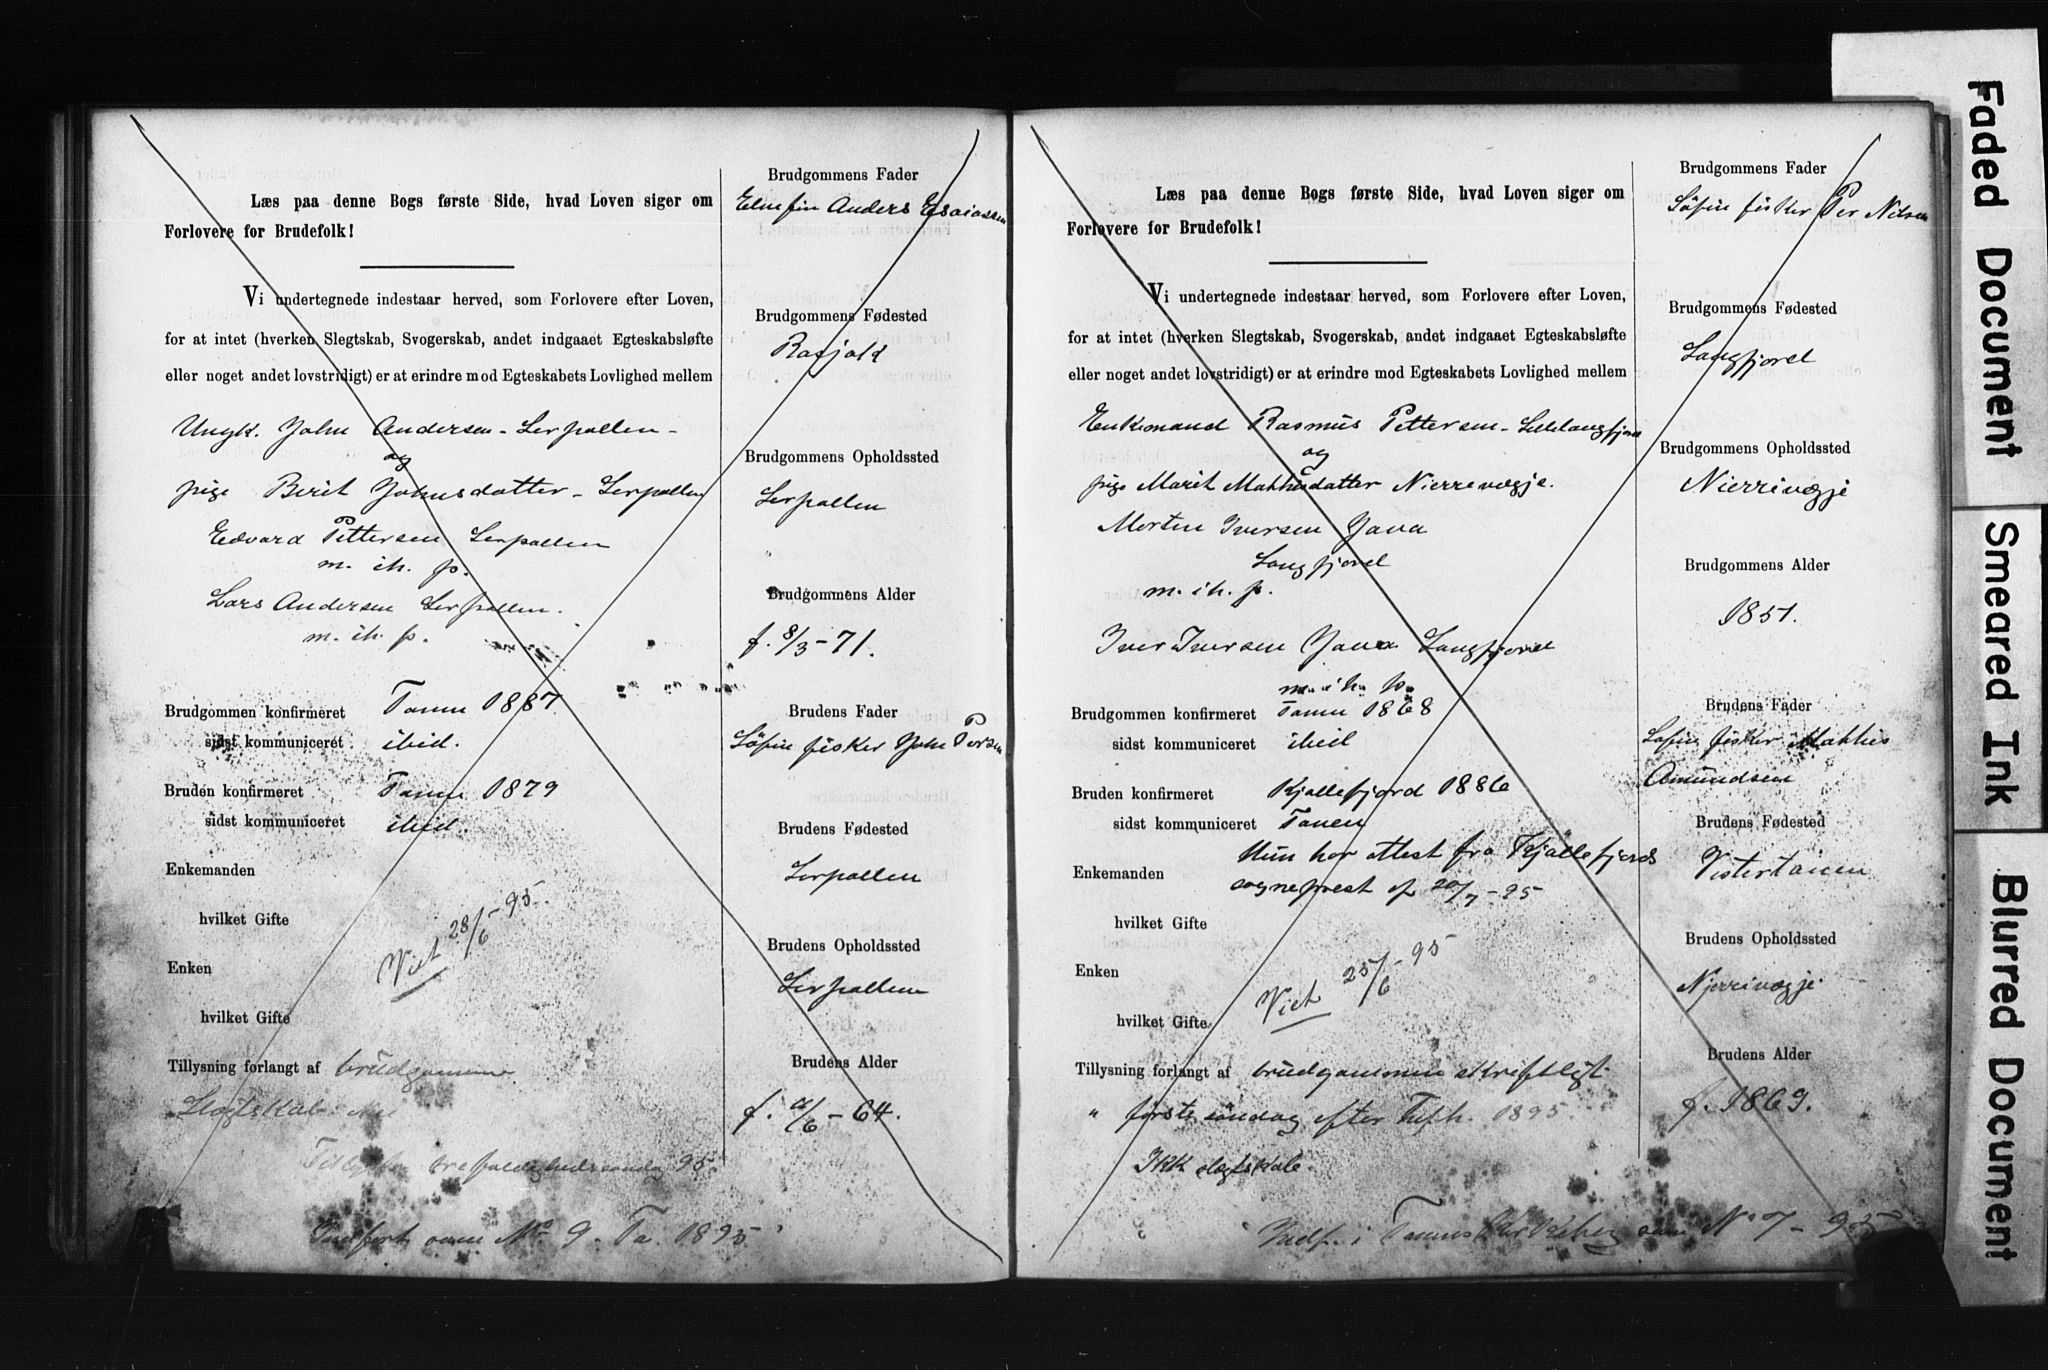 Læs paa denne Bogs første Side, hvad Loven siger om
Forlovere for Brudefolk!
Vi undertegnede indestaar herved, som Forlovere efter Loven,
for at intet (hverken Slegtskab, Svogerskab, andet indgaaet Egteskabsløfte
eller noget andet lovstridigt) er at erindre mod Egteskabets Lovlighed mellem
Ungk. John Andersen - Lerpollen -
og
pige Berit Johnsdatter - Lerpollen
Edvard Pettersen Lerpollen
m. ih. p.
Lars Andersen Lerpollen.
m. ih. p.
Brudgommen konfirmeret Tanen 1887.
sidst kommuniceret ibid.
Bruden konfirmeret Tanen 1879
sidst kommuniceret ibid.
Enkemanden
hvilket Gifte
Viet 28/6 - 95.
Enken
hvilket Gifte
Tillysning forlangt af brudgommen.
Slegtskab: Nei
trefoldighedssøndag 95.
Indført som No 9. Ta. 1895
Brudgommens Fader
Elvefin Anders Esaiassen
Brudgommens Fødested
Brudgommens Opholdssted
Lerpollen
Brudgommens Alder
f. 8/3 - 71.
Brudens Fader
Søfin fisker John Persen
Brudens Fødested
Lerpollen
Brudens Opholdssted
Lerpollen
Brudens Alder
- 64.
Læs paa denne Bogs første Side, hvad Loven siger om
Forlovere for Brudefolk!
Vi undertegnede indestaar herved, som Forlovere efter Loven,
for at intet (hverken Slegtskab, Svogerskab, andet indgaaet Egteskabsløfte
eller noget andet lovstridigt) er at erindre mod Egteskabets Lovlighed mellem
Enkemand Rasmus Pettersen - Lillelangfjord
og
pige Marit Mathisdatter Nierrivægje.
Morten Iversen Java
Langfjord
m. ih. p.
Iver Iversen Java Langfjord
m. ih. p.
Brudgommen konfirmeret Tanen 1868
sidst kommuniceret ibid
Bruden konfirmeret Kjøllefjord 1886
sidst kommuniceret Tanen
Hun har attest fra Kjøllefjords
Enkemanden
sogneprest af 20/7 - 95
hvilket Gifte
Viet 25/6 - 95
Enken
hvilket Gifte
Tillysning forlangt af brudgommen skriftligt
" første søndag efter Trefh. 1895.
Ikk slegtskab.
Indf. i Tanens Kirkebog som No 7 - 95
Brudgommens Fader
Søfin fisker Per Nilsen
Brudgommens Fødested
Langfjord
Brudgommens Opholdssted
Nierrivægje
Brudgommens Alder
1851.
Brudens Fader
Søfin fisker Mathis
Amundsen
Brudens Fødested
Vestertanen
Brudens Opholdssted
Njerrivægje
Brudens Alder
f. 1869.
Faded Document
Smeared Ink
Blurred Document